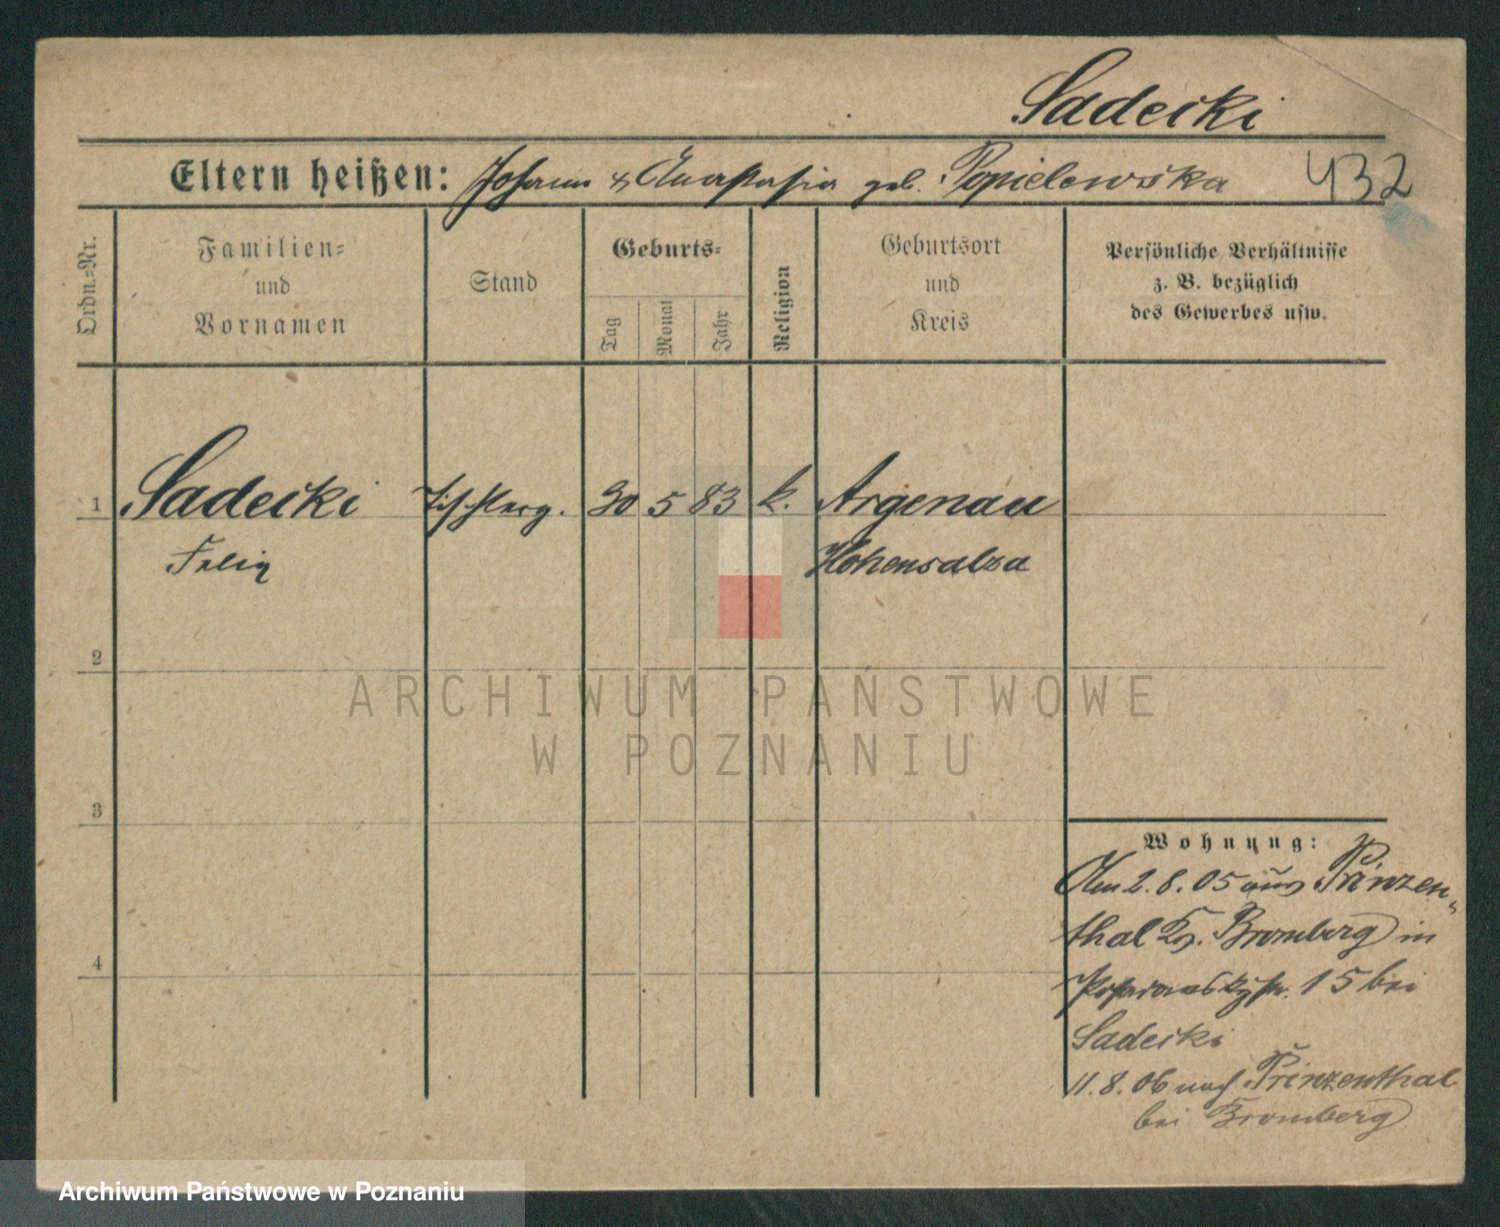 Sadecki
Eltern heißen: Johann & Anastasia geb. Popielewska 432
Ordn.=Nr.
Familien=
und
Vornamen
Stand
Geburts=
Tag
Monat
Jahr
Religion
Geburtsort
und
Kreis
Persönliche Verhältnisse
z. B. bezüglich
des Gewerbes usw.
1 Sadecki Tischlerg. 30 5 83 k. Argenau
Felix Hohensalza
2
ARCHIWUM PAŃSTWOWE
W POZNANIU
3
Wohnung:
Am 2.8.05 aus Prinzen-
thal Kr. Bromberg in
15 bei
Sadecki
4
11.8.06 nach Prinzenthal
bei Bromberg
Archiwum Państwowe w Poznaniu